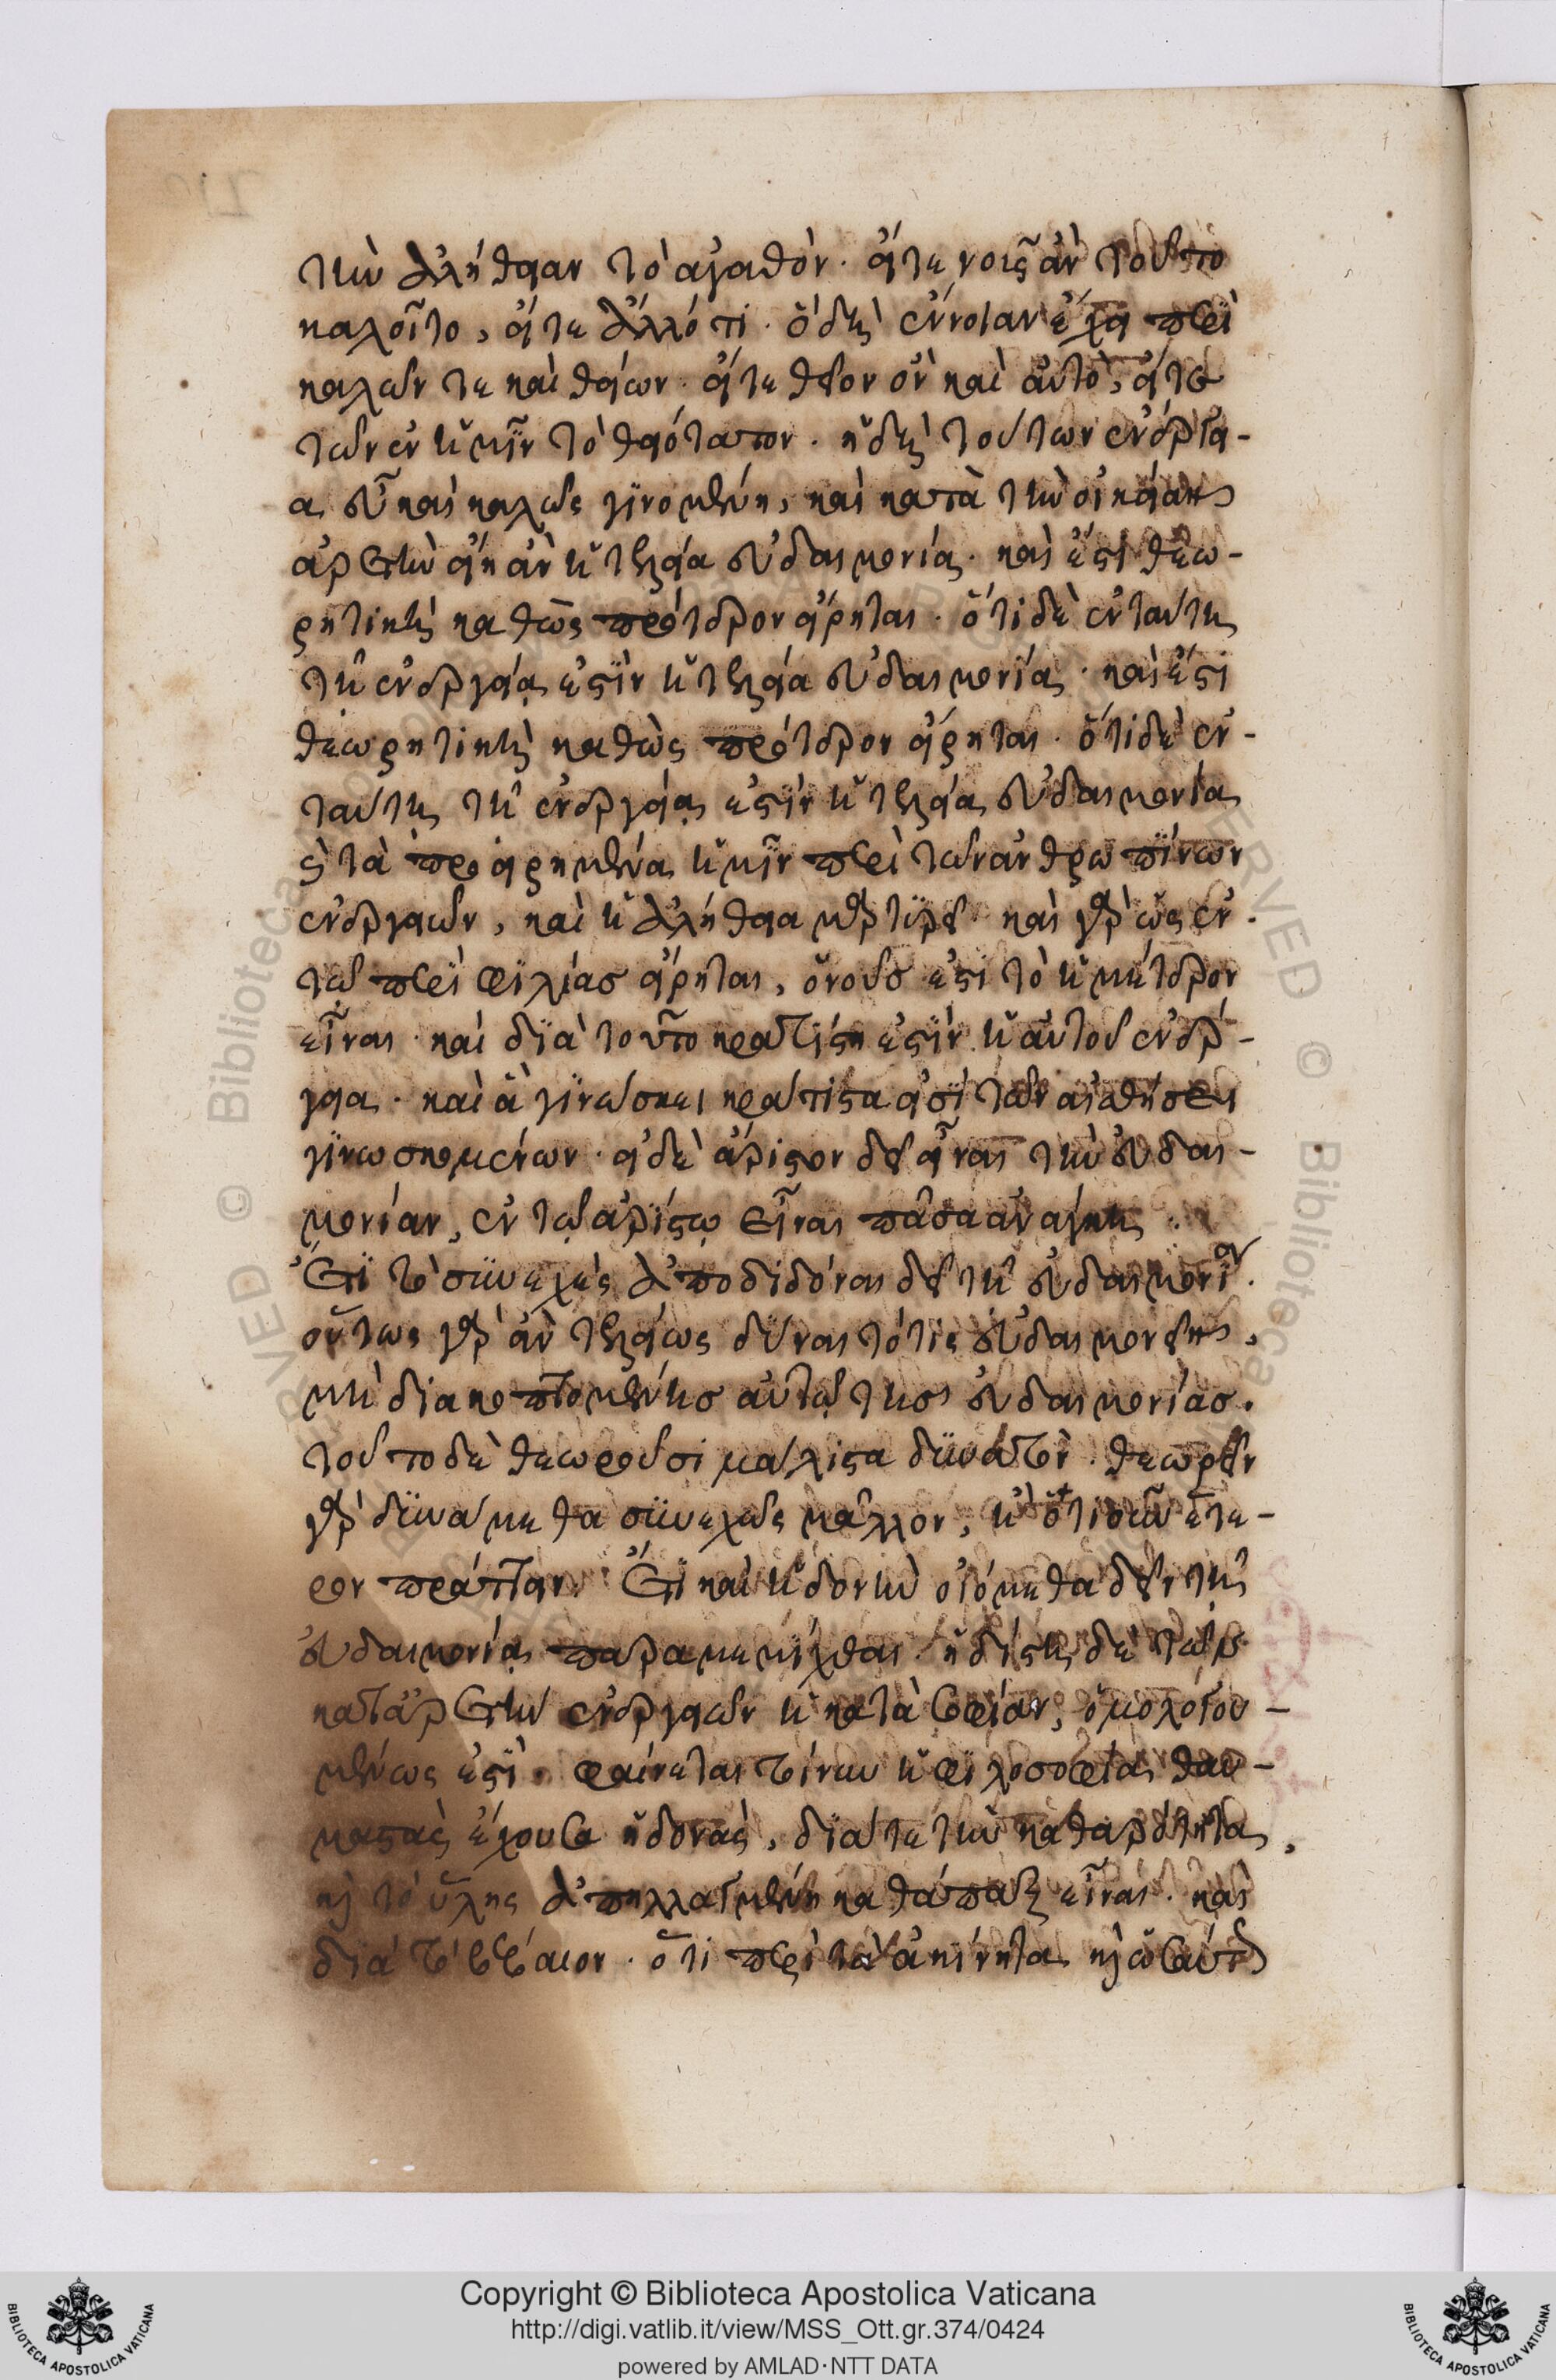 τὴν ἀλήθειαν τὸ ἀγαθόν. εἴτε νοῦς ἂν τοῦτο
καλοῖτο, εἴτε ἄλλό τι. ὃ δὴ ἔννοιαν ἔχει περὶ
καλῶν τε καὶ θείων. εἴτε θεῖον ὂν καὶ αὐτὸ, εἴτε
τῶν ἐν ἡμῖν τὸ θειότατον. ἡ δὴ τούτων ἐνέργει-
α εὖ καὶ καλῶς γινομένη, καὶ κατὰ τὴν οἰκείαν
ἀρετὴν εἴη ἂν ἡ τελεία εὐδαιμονία. καὶ ἔστι θεω-
ρητικὴ καθὼς πρότερον εἴρηται. ὅτι δὲ ἐν ταύτῃ
τῇ ἐνεργείᾳ ἐστὶν ἡ τελεία εὐδαιμονία. καὶ ἔστι
θεωρητικὴ καθὼς πρότερον εἴρηται. ὅτι δὲ ἐν
ταύτῃ τῇ ἐνεργείᾳ ἐστὶν ἡ τελεία εὐδαιμονία
τὰ προειρημένα ἡμῖν περὶ τῶν ἀνθρωπίνων
ἐνεργειῶν, καὶ ἡ ἀλήθεια μαρτυρεῖ. καὶ γὰρ ὡς ἐν
τῷ περὶ φιλίας εἴρηται, ὁ νοῦς ἐστι τὸ ἡμέτερον
εἶναι. καὶ διὰ τοῦτο κρατίστη ἐστὶν ἡ αὐτοῦ ἐνέρ-
γεια. καὶ ἃ γινώσκει κράτιστα εἰσὶ τῶν αἰσθήσει
γινωσκομένων. εἰ δὲ ἄριστον δεῖ εἶναι τὴν εὐδαι-
μονίαν, ἐν τῷ ἀρίστῳ εἶναι πᾶσα ἀνάγκη.
Ἔτι τὸ συνεχὲς ἀποδιδόναι δεῖ τῇ εὐδαιμονίᾳ.
οὕτως γὰρ ἂν τελείως δύναιτό τις εὐδαιμονεῖν,
μὴ διακοπτομένης αὐτῷ τῆς εὐδαιμονίας.
τοῦτο δὲ θεωροῦσι μάλιστα δυνατόν. θεωρεῖν
γὰρ δυνάμεθα συνεχῶς μᾶλλον, ἢ ὁτιοῦν ἕτε-
ρον πράττειν. Ἔτι καὶ ἡδονὴν οἰόμεθα δεῖν τῇ
εὐδαιμονίᾳ παραμεμίχθαι. ἡδίστη δὲ τῶν
κατ' ἀρετὴν ἐνεργειῶν ἡ κατὰ σοφίαν, ὁμολογου-
μένως ἐστί. φαίνεται τοίνυν ἡ φιλοσοφία θαυ-
μαστὰς ἔχουσα ἡδονὰς, διά τε τὴν καθαρότητα,
καὶ τὸ ὕλης ἀπηλλαγμένη καθάπαξ εἶναι. καὶ
διὰ τὸ βέβαιον. ὅτι περὶ τὰ ἀκίνητα καὶ ὡσαύτως
Copyright © Biblioteca Apostolica Vaticana
http://digi.vatlib.it/view/MSS_Ott.gr.374/0424
powered by AMLAD·NTT DATA